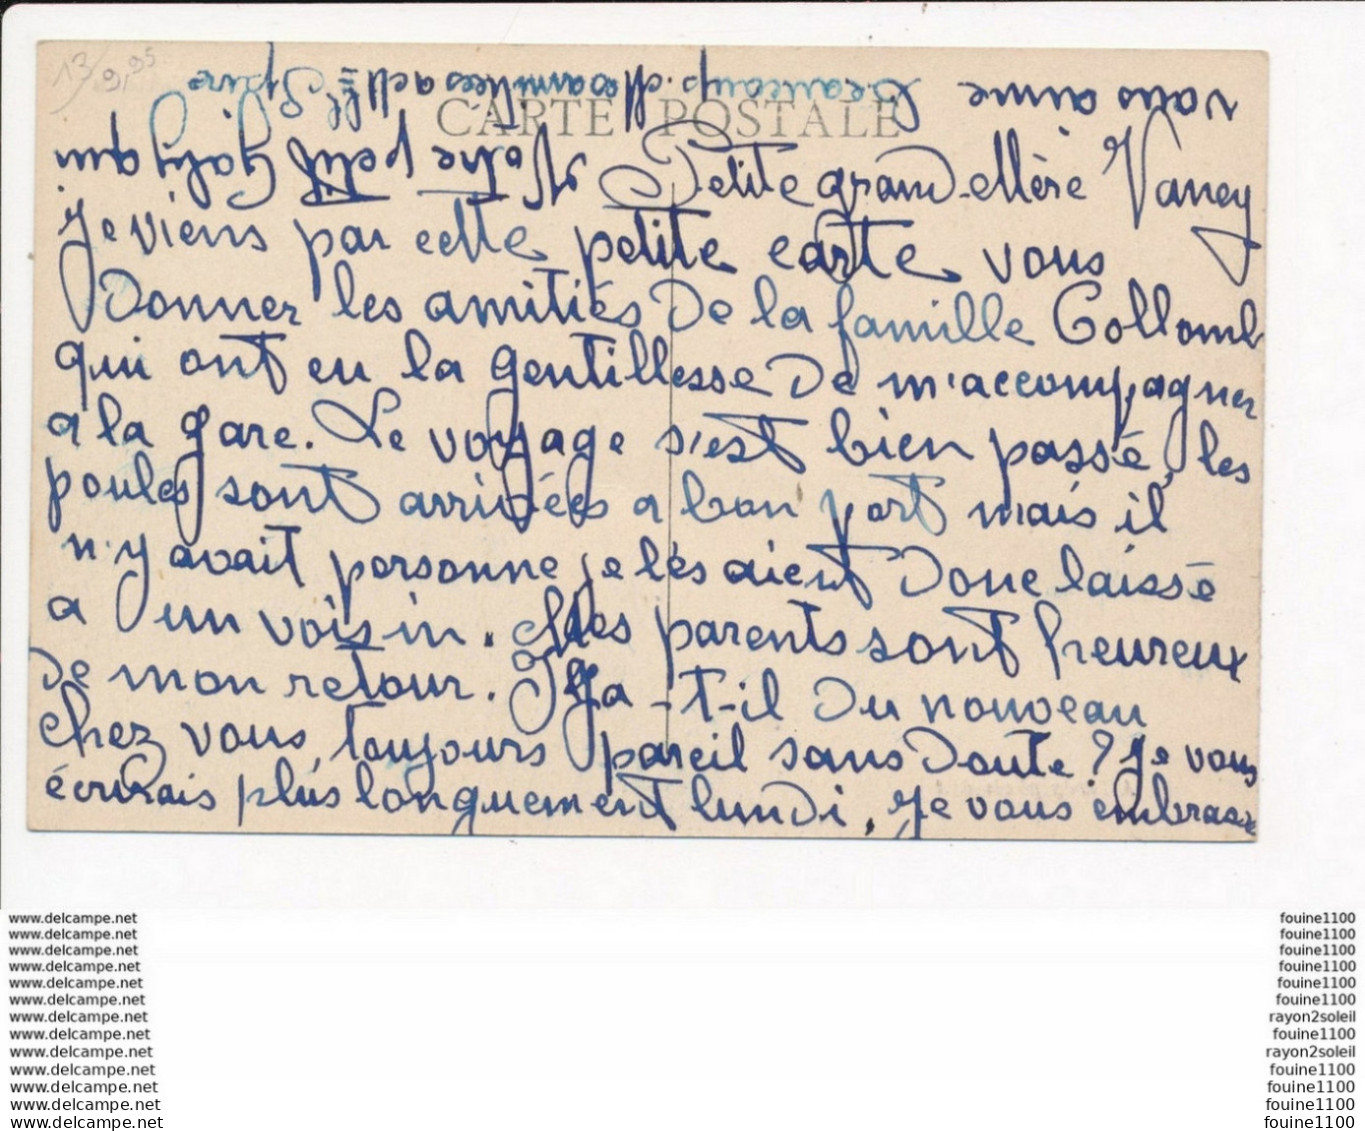 13/9,95
CARTE POSTALE
Petite grand-Mère Vaney
Je viens par cette petite carte vous
Donner les amitiés De la famille Collomb
qui ont eu la gentillesse De m'accompagner
a la gare. Le voyage s'est bien passé, les
poules sont arrivées a bon port mais il
n'y avait personne je les aient Donc laissé
a un voisin. Mes parents sont heureux
De mon retour. Y a-t-il Du nouveau
chez vous, toujours pareil sans Doute? Je vous
écrirais plus longuement lundi. Je vous embrasse
Votre petit Gaby qui
vous aime Beaucoup. Mes amitiées a
www.delcampe.net
www.delcampe.net
www.delcampe.net
www.delcampe.net
www.delcampe.net
www.delcampe.net
www.delcampe.net
www.delcampe.net
www.delcampe.net
www.delcampe.net
www.delcampe.net
www.delcampe.net
www.delcampe.net
fouine1100
fouine1100
fouine1100
fouine1100
fouine1100
fouine1100
rayon2soleil
fouine1100
rayon2soleil
fouine1100
fouine1100
fouine1100
fouine1100